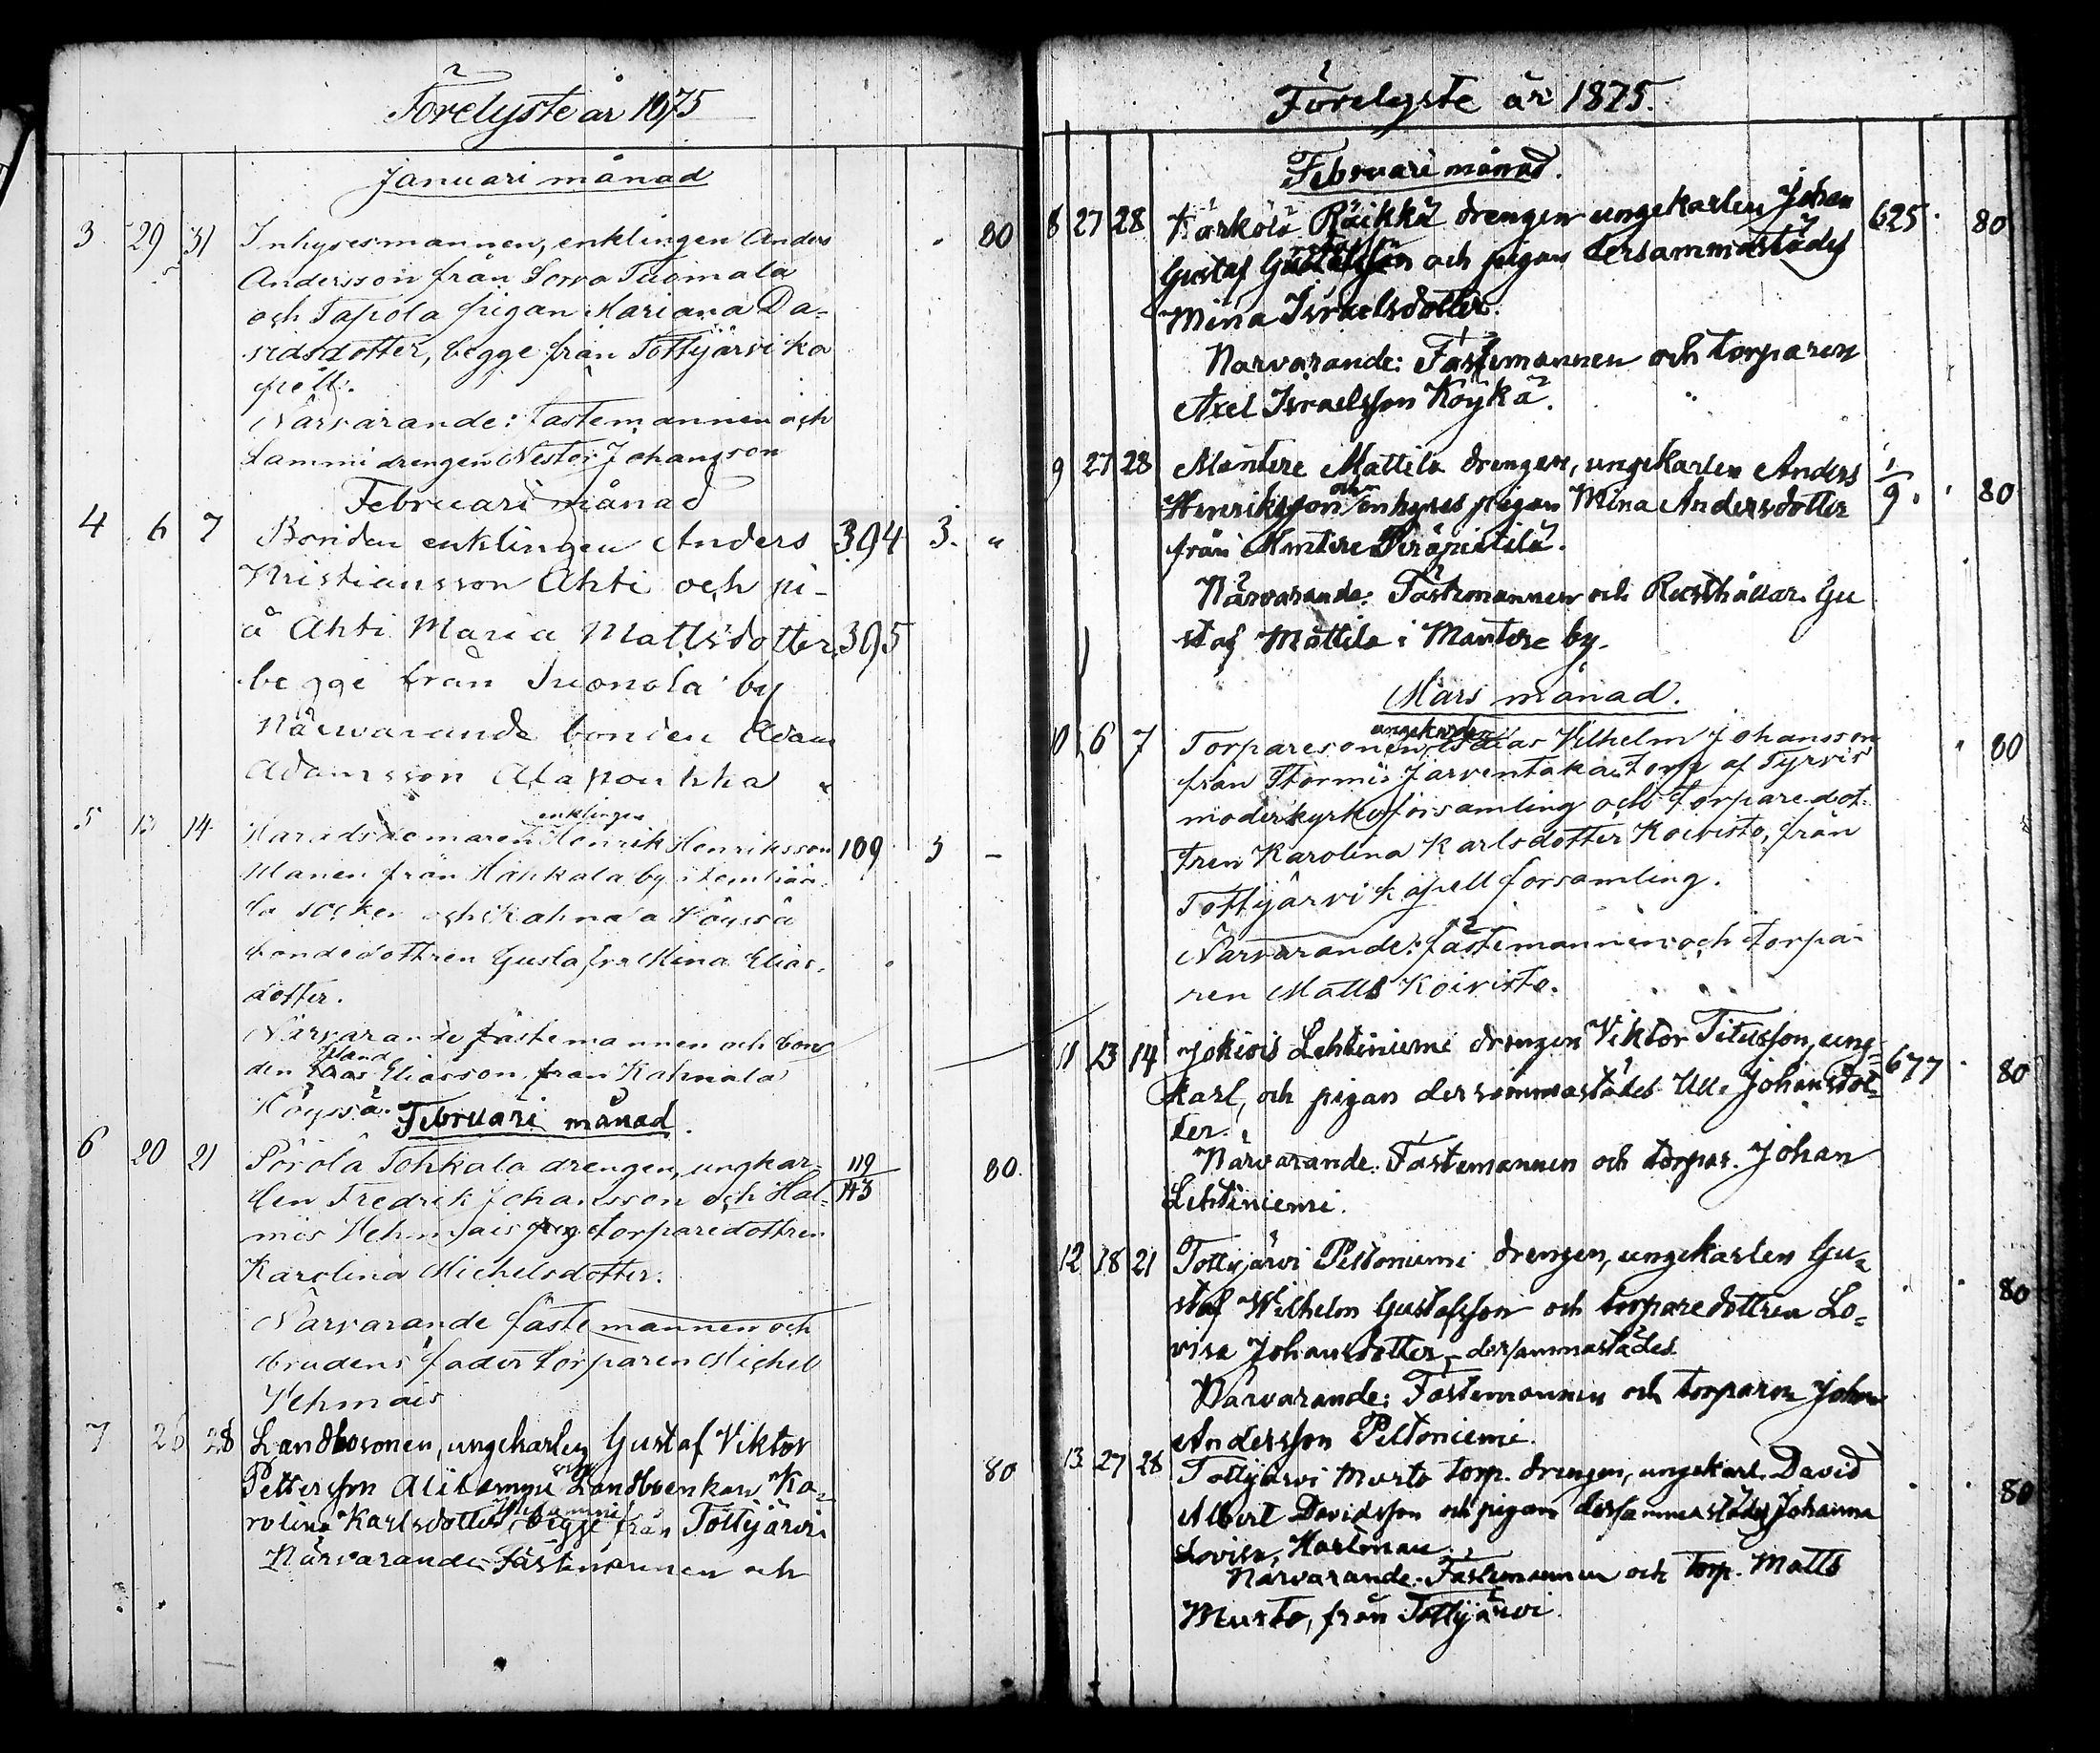 Förelyste år 1875
Januari månad
3 29 31 Inhysesmannen, enklingen Anders " 80
Andersson från Sorva Tuomala
och Tapola pigan Mariana Da-
vidsdotter, begge från Tottijärvi ka
pell.
Närvarande: fästemannen och
Lammi drengen Nestor Johansson
Februari månad
4 6 7 Bonden enklingen Anders 394 3. "
Kristiansson Ahti och pi-
å Ahti Maria Mattsdotter 395
begge från by
Närvarande bonden Adam
Adamsson Alapoukka
5 13 14 enklingen
Häradsdomaren Henrik Henriksson 109 3 -
från Hahkala by i
socken och Kahnala Köyssä
bondedottren Gustafva Mina Elias-
dotter.
Närvarande fästemannen och bon
den Eliasson från Kahnala
Köyssä. Februari månad.
6 20 21 Pörölä Tohkala drengen, ungkar- 119 80.
len Fredrik Johansson och Hal- 143
mis Vehmais torparedottren
Karolina Michelsdotter.
Närvarande fästemannen och
brudens fader torparen Michel
Vehmais
7 26 28 Landbosonen, ungekarlen Gustaf Viktor
Pettersson Alitammi och Landboenkan Ka- 80
rolina Karlsdotter, begge från Tottijärvi
Närvarande: Fästemannen och
Förelyste år 1875.
Februari månad.
8 27 28 Kärkölä Räikkä drengen ungekarlen Johan 625 " 80
Gustaf Gustafsson och pigan dersammastädes
Mina Israelsdotter.
Närvarande: Fästemannen och torparen
Axel Israelsson Köykä.
9 27 28 Mantere Mattila drengen, ungekarlen Anders 1
Henriksson och inhyses pigan Mina Andersdotter 9 " " 80
från Mantere Peräpietilä.
Närvarande: Fästemannen och Rusthållar. Gu
staf Mattila i Mantere by.
Mars månad.
10 6 7 ungekarlen
Torparesonen Vilhelm Johansson " 80
från Stormis Järventaka torp af Tyrvis
moderkyrkoförsamling och torparedot-
tren Karolina Karlsdotter Koivisto, från
Tottijärvi kapell församling.
Närvarande: fästemannen och torpa-
ren Matts Koivisto.
11 13 14 Jokiois Lehtiniemi drengen Viktor Titusson, ung-
karl, och pigan dersammastädes Ulla Johansdot- 677 " 80
ter.
Närvarande: Fästemannen och torpar. Johan
Lehtiniemi.
12 18 21 Tottijärvi Peltoniemi drengen, ungekarlen Gu-
staf Wilhelm Gustafsson och torparedottren Lo- " " 80
visa Johansdotter, dersammastädes.
Närvarande: Fästemannen och torparen Johan
Andersson Peltoniemi.
13 27 28 Tottijärvi Murto torp. drengen, ungekarl. David
Albert Davidsson och pigan dersammastädes Johanna " " 80
Lovisa Hartman.
Närvarande: Fästemannen och torp. Matts
Murto, från Tottijärvi.